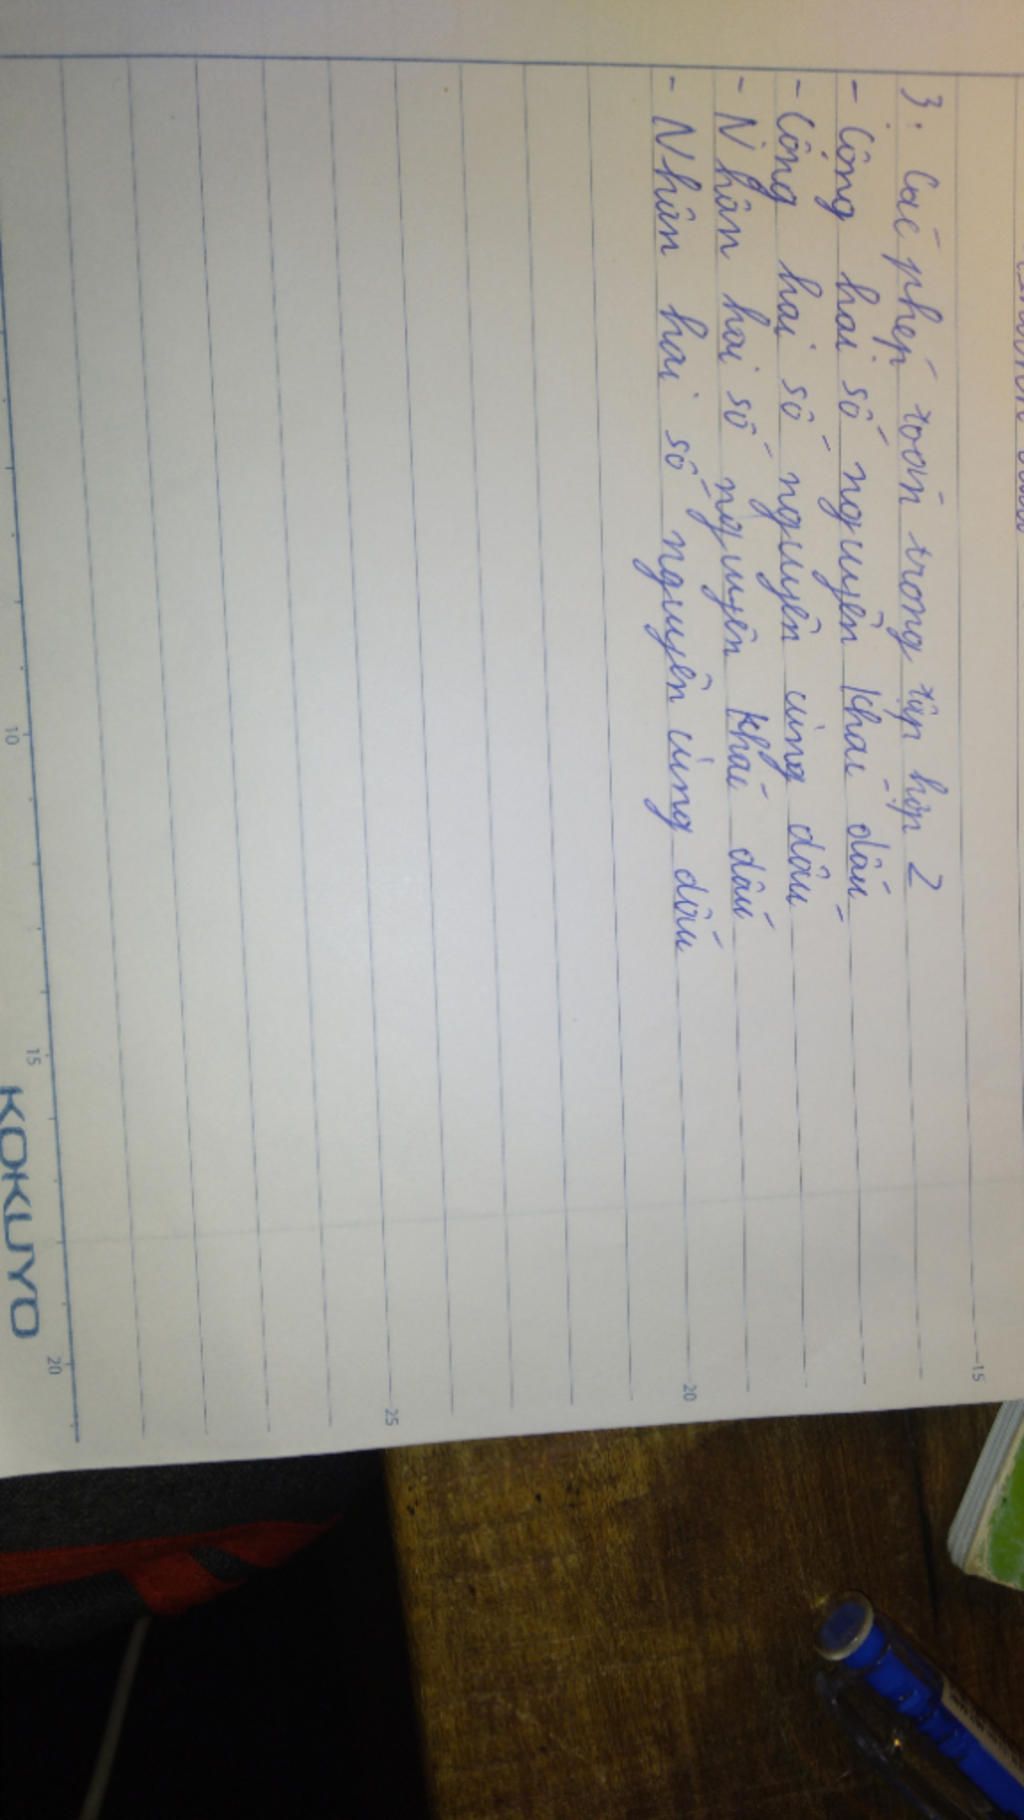 3. Các phép toán trong tập hợp Z
- Cộng hai số nguyên khác dấu
- Cộng hai số nguyên cùng dấu
- Nhân hai số nguyên khác dấu
- Nhân hai số nguyên cùng dấu
15
20
25
10
15
20
KOKUYO